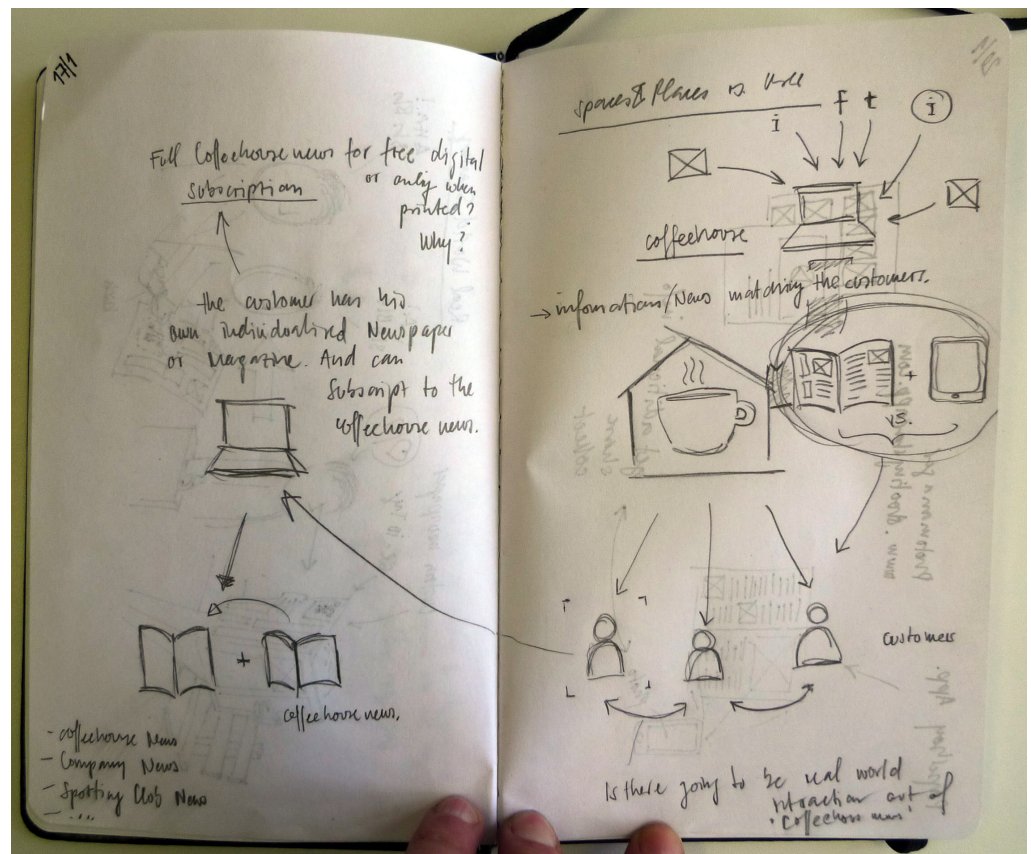 17/1
Full Coffeehouse news for free digital
subscription or only when
printed?
Why?
the customer has his
own individualised Newspaper
or Magazine. And can
subscript to the
coffeehouse news.
+
coffeehouse news.
- coffeehouse News
- Company News
- Sporting Club News
- ....
Spaces & Places
i f t i
coffeehouse
→ informations/News matching the customers.
+
vs.
customers
Is there going to be real world
intraction out of
"Coffeehouse news"